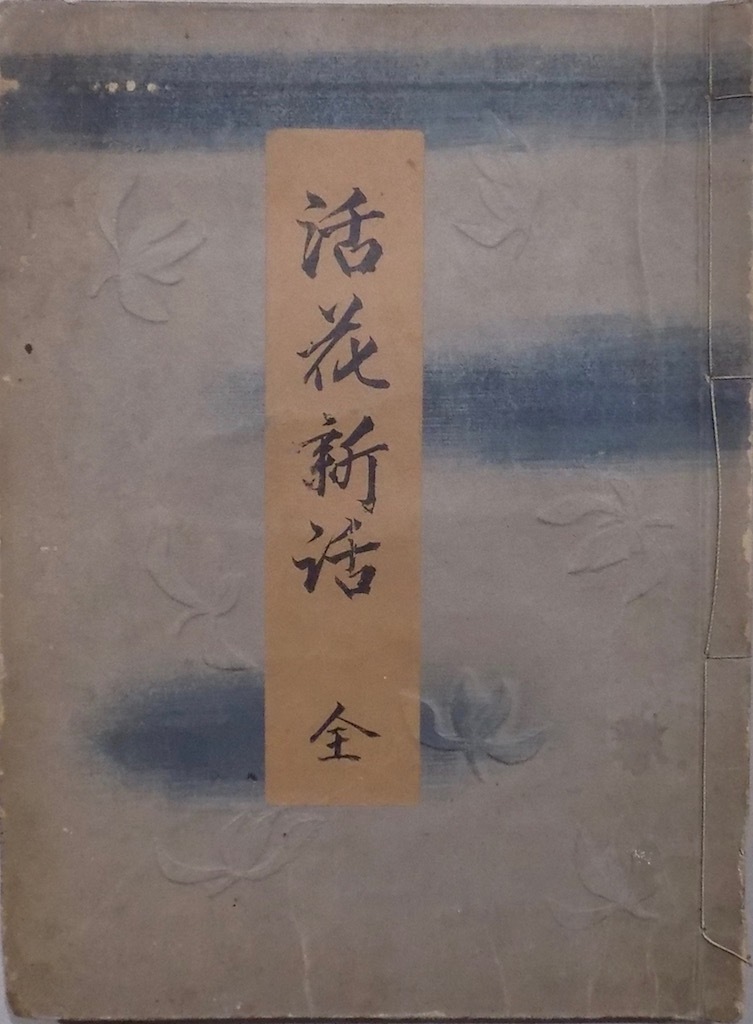 活花新話 全